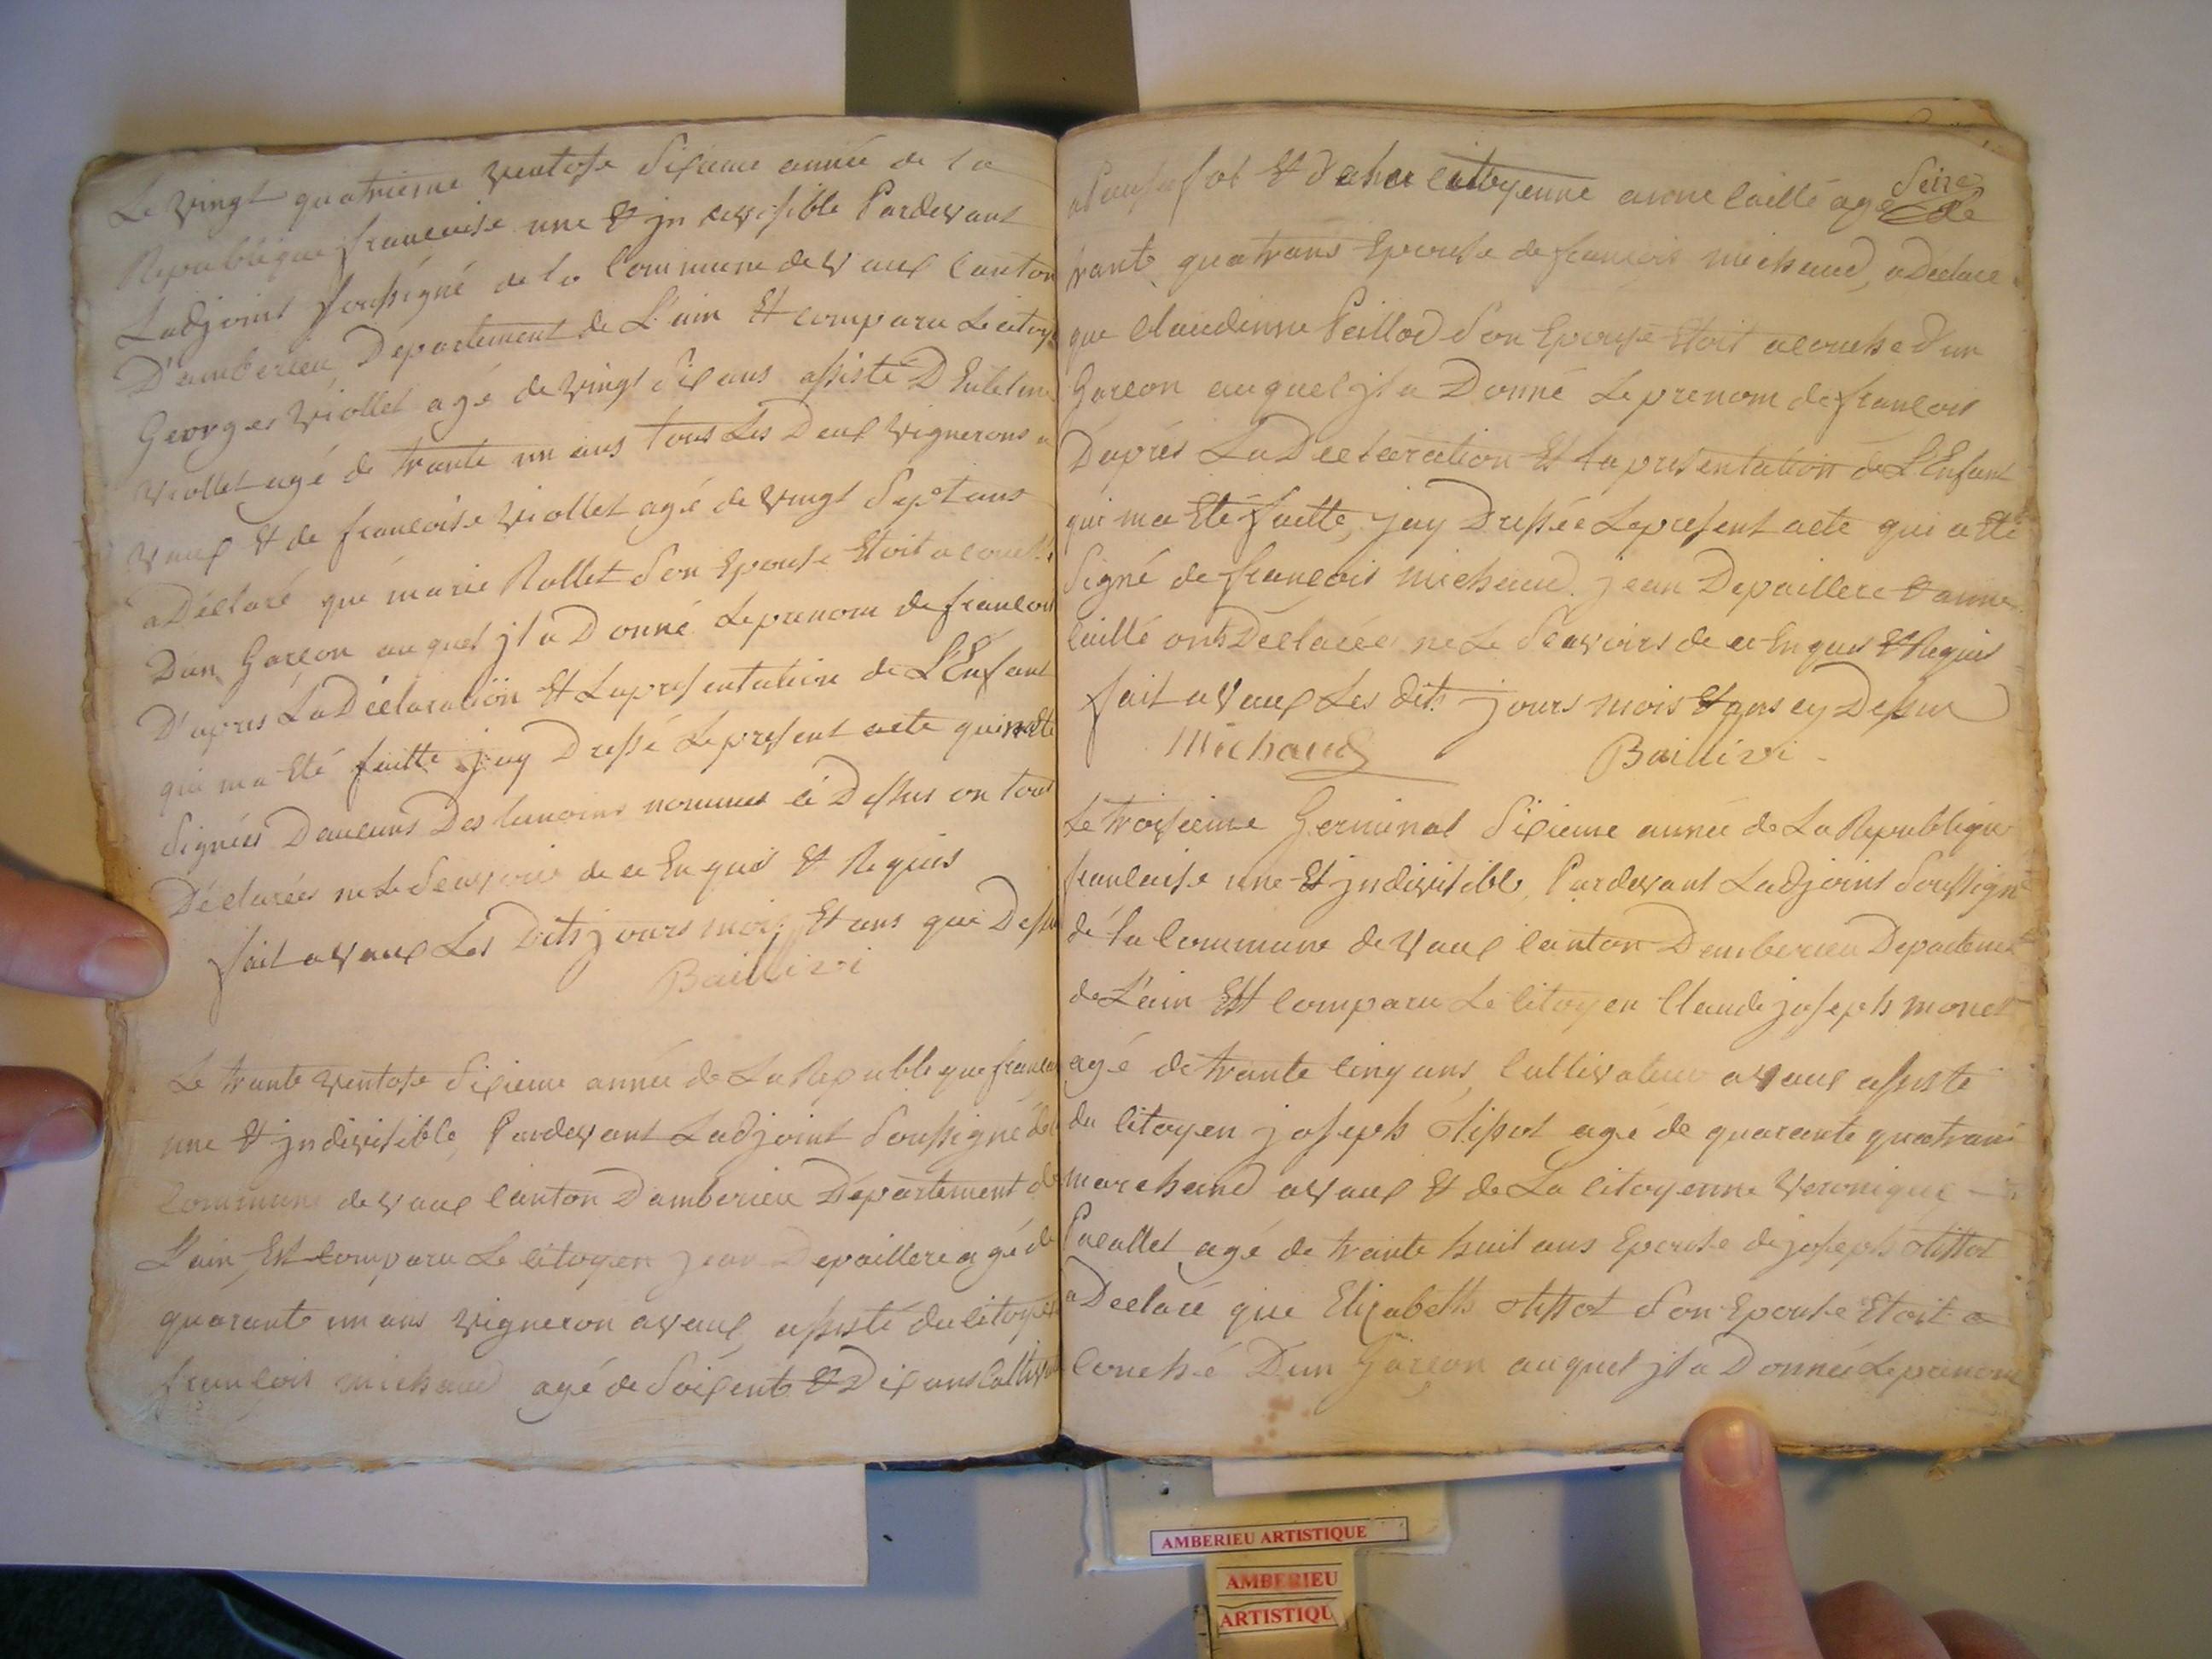 Le vingt quatrieme ventose sixieme année de la
Republique francaise une et jndivisible Pardevant
Ladjoint soussigné de la Commune devaux Canton
D'amberieu Departement de L'ain Et comparu Le citoy
Georges viollet agé de vingt six ans assisté D
viollet agé de trante un ans tous Les Deux vignerons a
vaux Et de francoise viollet agé de vingt sept ans
a Déclaré que marie Rollet son Epouse Etoit acouch
Dun Garcon auquel jl a Donné Le prenom de francois
D'apres La Déclaration Et La presentation de L'Enfant
qui ma Eté faitte jay Dressé Le present acte qui na Eté
signées Daucuns Des temoins nommes ci Dessus on tous
Déclarées ne Le scavoir de ce Enquis Et Requis
fait avaux Les Dits jours mois Et ans que Dessu
Baillivi
Le trante ventose sixieme année de La Republique francai
une Et jndivisible, Pardevant Ladjoint soussigné de la
Commune de vaux Canton Damberieu Département de
L'ain Est Comparu Le Citoyen jean Depaillere agé de
quarante un ans vigneron avaux assisté du Citoyen
francois michaud agé de soixente Et Dix ans Cultiva
Et de La Citoyenne anne Caillé agé de seize
trante quatrans Epouse de francois michaud, a Declaré
que Claudinne Peillod son Epouse Etoit acouche d'un
Garcon auquel jl a Donné Le prenom de francois
Daprés La Declaration Et La presentation de L'Enfant
qui ma Eté faitte, jay Dressée Le present acte qui a Eté
signé de francois michaud. jean Depaillere Et anne
Caillé ont Déclarée ne Le scavoirs de ce Enquis Et Requis
fait avaux Les dits jours mois Et ans cy Dessus
Michaud Baillivi
Le troisieme Germinal sixieme année de La Republique
francaise une Et jndivisible, Pardevant Ladjoint soussigné
de la Commune de vaux Canton Damberieu Departement
de L'ain Est Comparu Le Citoyen Claude joseph monet
agé de trante Cinq ans Cultivateur avaux assisté
du Citoyen joseph tissot agé de quarante quatrans
marchand avaux Et de La Citoyenne veronique
agé de trante huit ans Epouse de joseph tissot
a Declaré que Elizabeth tissot son Epouse Etoit a
Couché D'un Garcon auquel jl a Donnée Le prenom
AMBERIEU ARTISTIQUE
AMBERIEU
ARTISTIQU